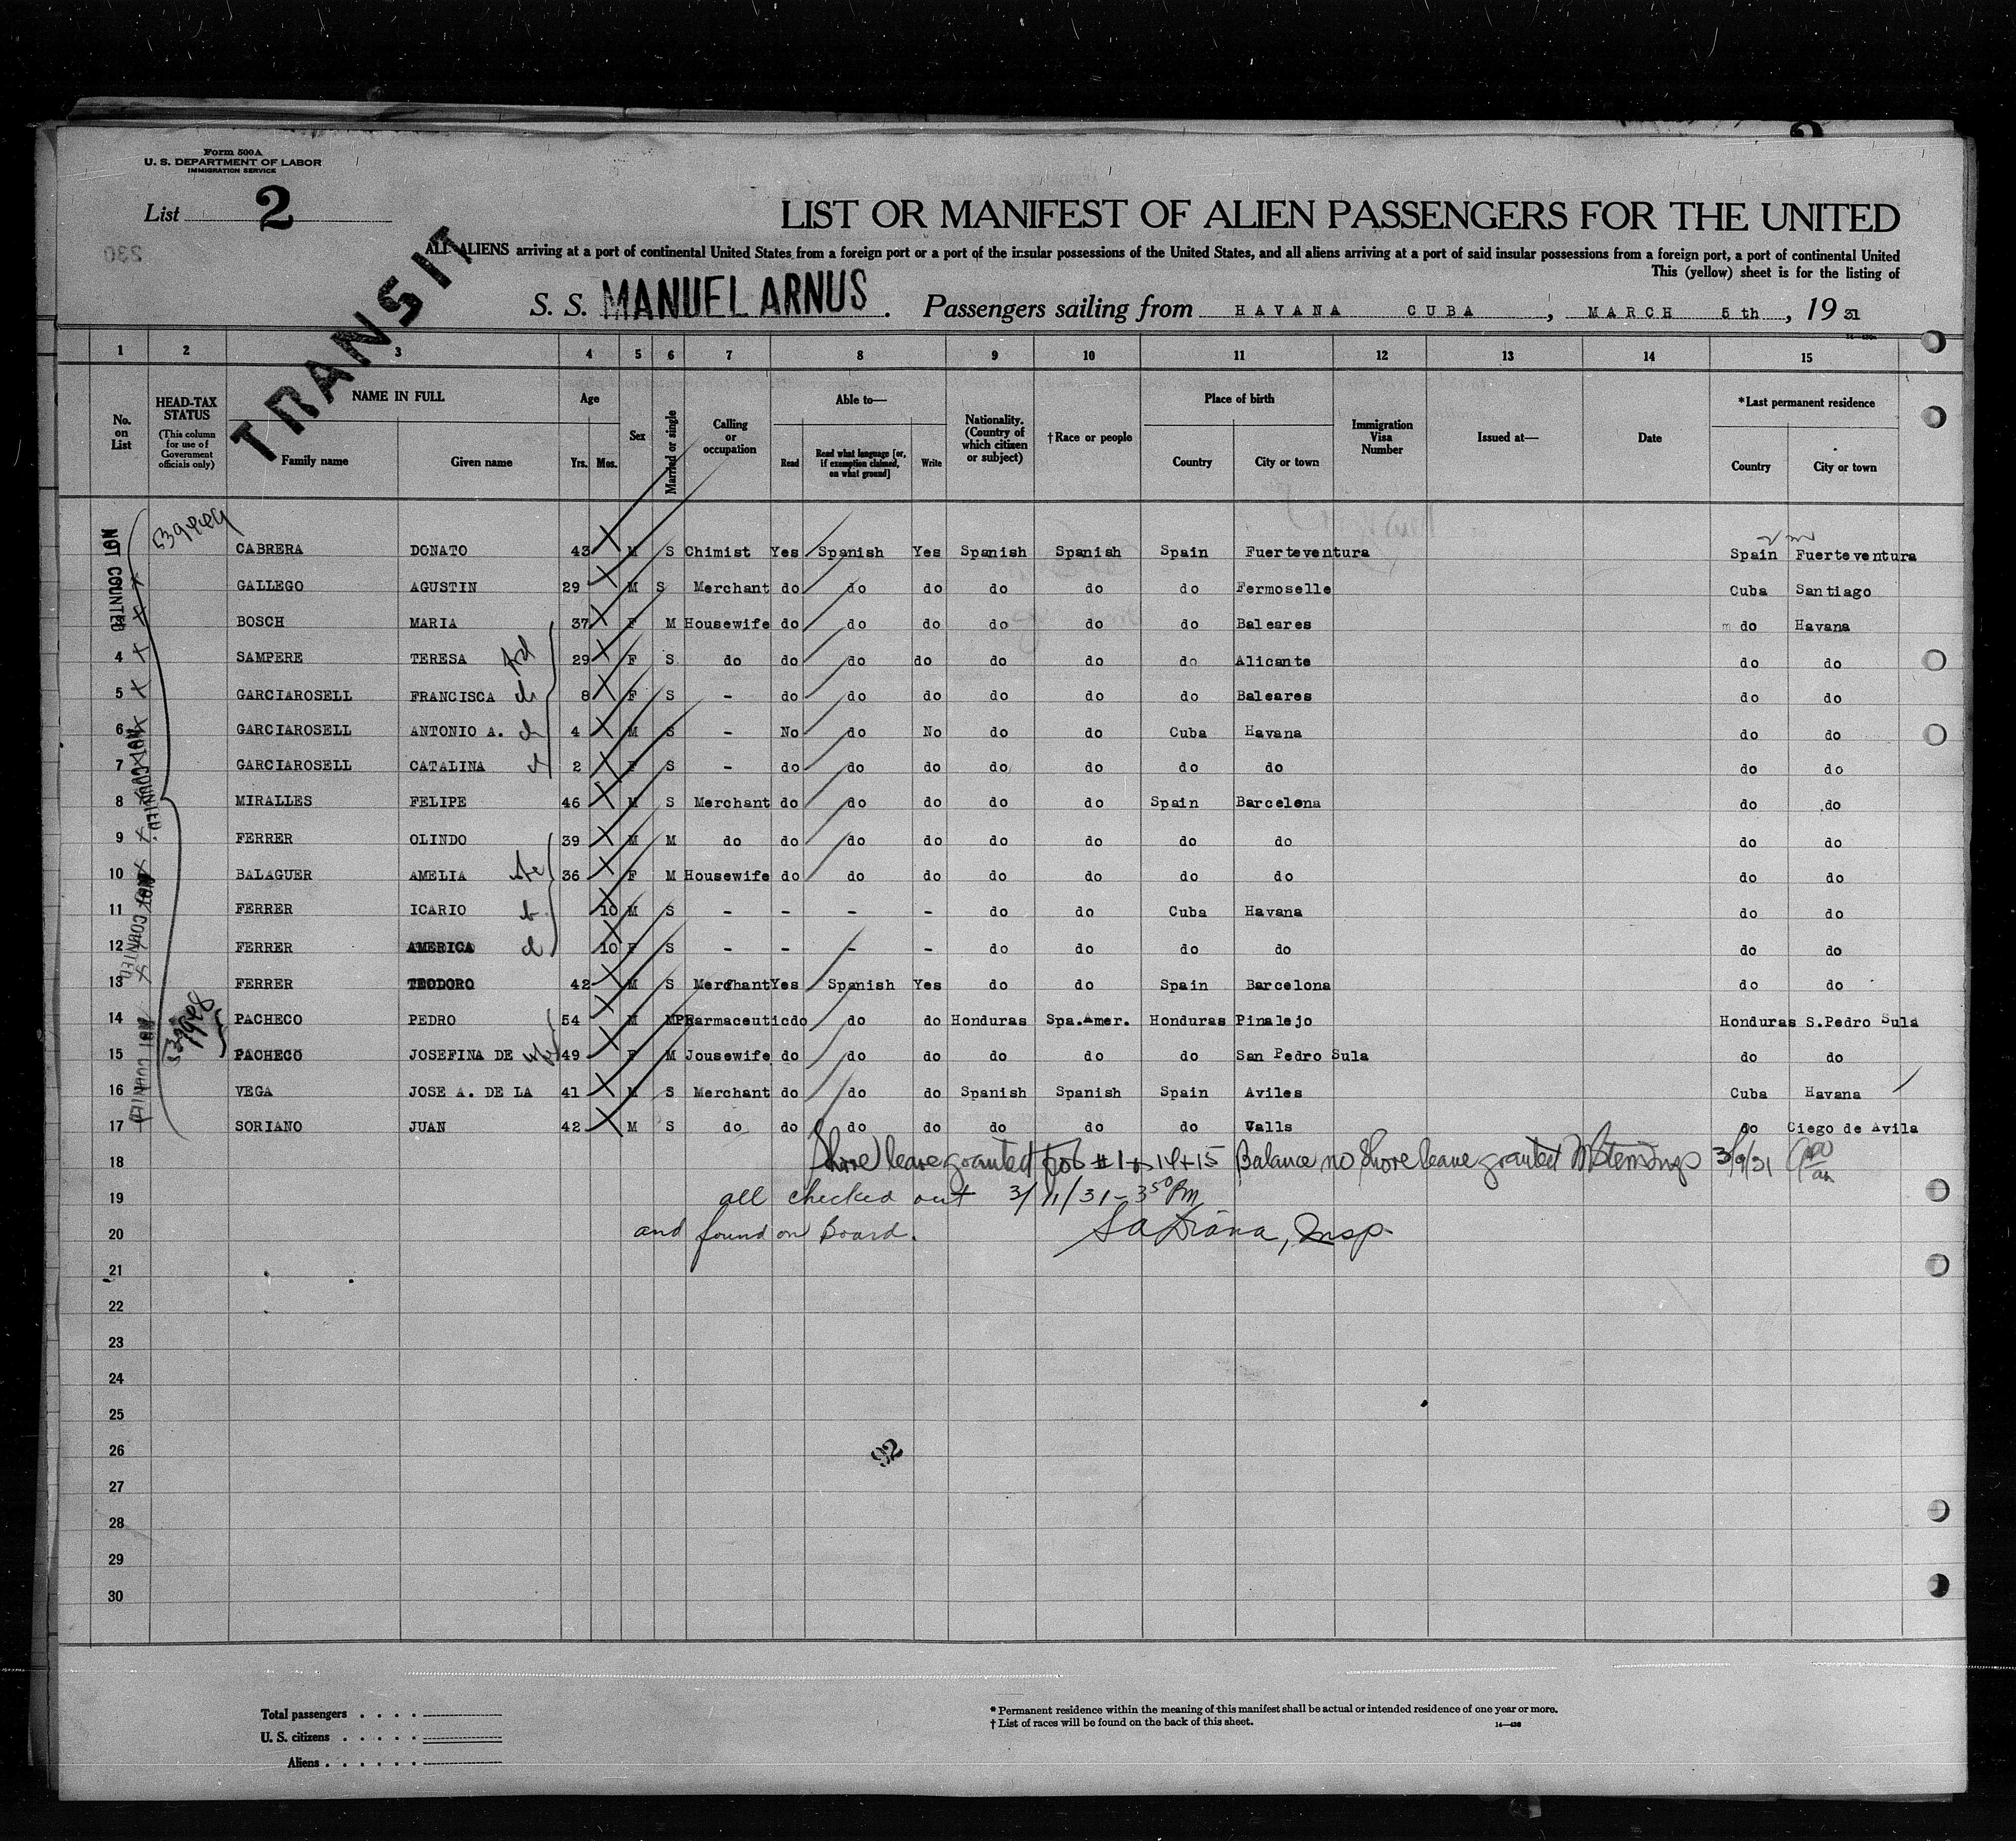 Form 500A
U. S. DEPARTMENT OF LABOR
IMMIGRATION SERVICE
List 2
LIST OR MANIFEST OF ALIEN PASSENGERS FOR THE UNITED
230
TRANSIT
ALL ALIENS arriving at a port of continental United States from a foreign port or a port of the insular possessions of the United States, and all aliens arriving at a port of said insular possessions from a foreign port, a port of continental United
This (yellow) sheet is for the listing of
S. S. MANUEL ARNUS. Passengers sailing from HAVANA CUBA, MARCH 5th, 19 31
1 2 3 4 5 6 7 8 9 10 11 12 13 14 15
No. on List
HEAD-TAX STATUS (This column for use of Government officials only)
NAME IN FULL Family name Given name
Age Yrs. Mos.
Sex
Married or single
Calling or occupation
Able to— Read Read what language [or, if exemption claimed, on what ground] Write
Nationality. (Country of which citizen or subject)
†Race or people
Place of birth Country City or town
Immigration Visa Number
Issued at—
Date
*Last permanent residence Country City or town
NOT COUNTED
CABRERA DONATO 43 M S Chimist Yes Spanish Yes Spanish Spanish Spain Fuerteventura Spain Fuerteventura
GALLEGO AGUSTIN 29 M S Merchant do do do do do do Fermoselle Cuba Santiago
BOSCH MARIA 37 F M Housewife do do do do do do Baleares do Havana
4 SAMPERE TERESA 29 F S do do do do do do do Alicante do do
5 GARCIAROSELL FRANCISCA 8 F S - do do do do do do Baleares do do
6 GARCIAROSELL ANTONIO A. 4 M S - No do No do do Cuba Havana do do
7 GARCIAROSELL CATALINA 2 F S - do do do do do do do do do
8 MIRALLES FELIPE 46 M S Merchant do do do do do Spain Barcelona do do
9 FERRER OLINDO 39 M M do do do do do do do do do do
10 BALAGUER AMELIA 36 F M Housewife do do do do do do do do do
11 FERRER ICARIO 10 M S - - - - do do Cuba Havana do do
12 FERRER AMERICA 10 F S - - - - do do do do do do
13 FERRER TEODORO 42 M S Merchant Yes Spanish Yes do do Spain Barcelona do do
14 PACHECO PEDRO 54 M M Pharmaceutic do do do Honduras Spa.Amer. Honduras Pinalejo Honduras S.Pedro Sula
15 PACHECO JOSEFINA DE 49 F M Jousewife do do do do do do San Pedro Sula do do
16 VEGA JOSE A. DE LA 41 M S Merchant do do do Spanish Spanish Spain Aviles Cuba Havana
17 SORIANO JUAN 42 M S do do do do do do do Valls do Ciego de Avila
18 Shore leave granted for #1 14+15 Balance no Shore leave granted 3/9/31
19 all checked out 3/11/31 - 3 50 PM
20 and found on Board. Insp.
21
22
23
24
25
26
27
28
29
30
92
Total passengers
U. S. citizens
Aliens
* Permanent residence within the meaning of this manifest shall be actual or intended residence of one year or more.
† List of races will be found on the back of this sheet.